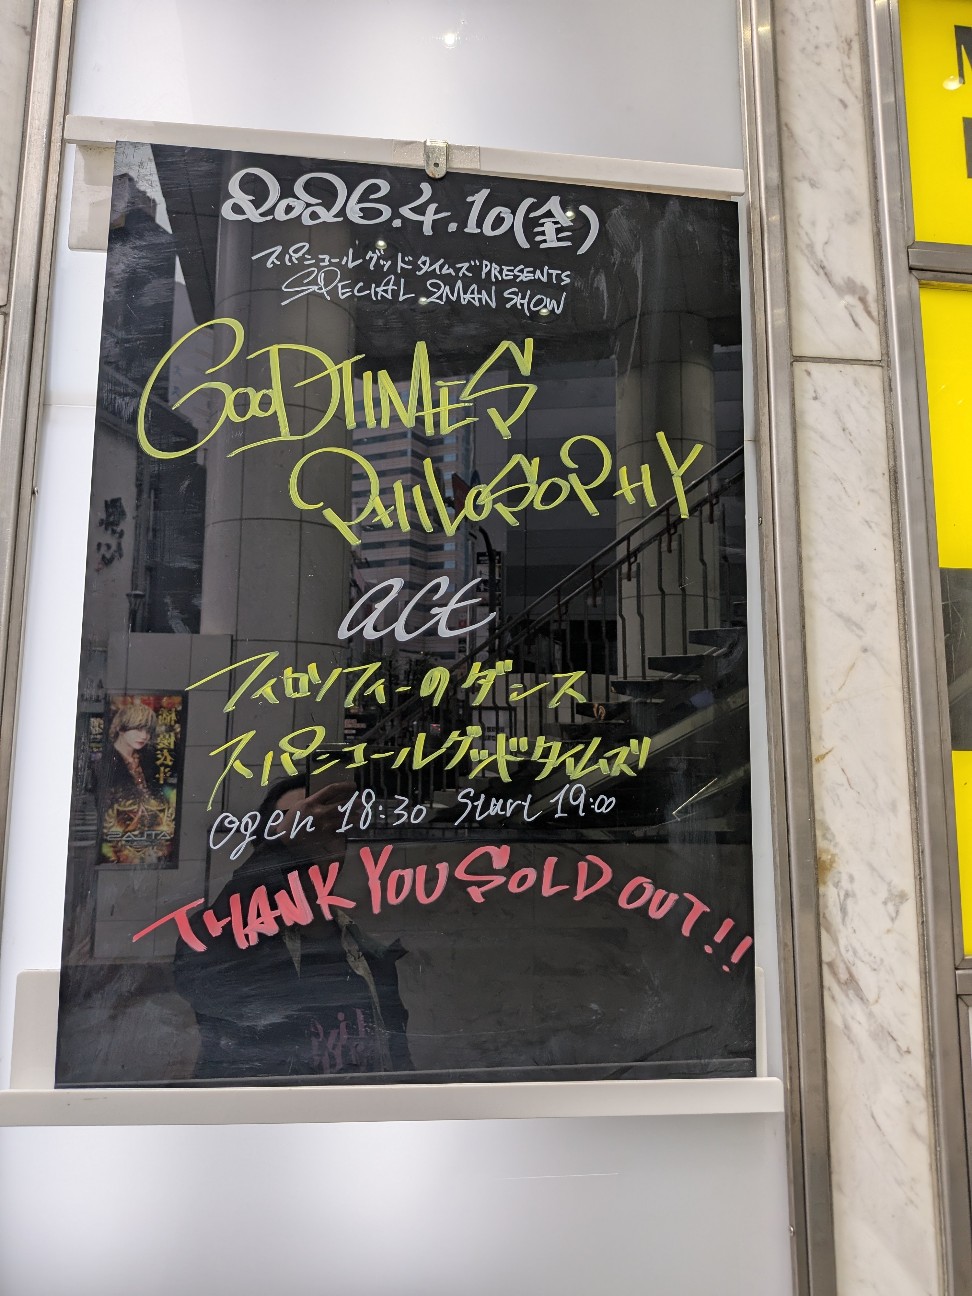 2026.4.10(金)
スパンコールグッドタイムズPRESENTS
SPECIAL 2MAN SHOW
GOODTIMES
PHILOSOPHY
act
フィロソフィーのダンス
スパンコールグッドタイムズ
open 18:30 start 19:00
THANK YOU SOLD OUT!!